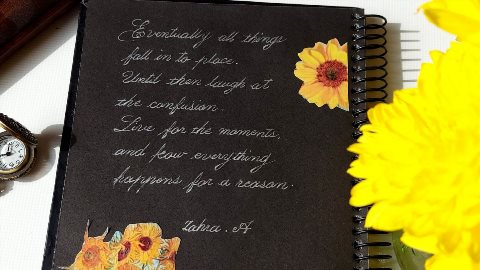 Eventually all things
fall in to place.
Until then laugh at
the confusion.
Live for the moments,
and know everything
happens for a reason.
Zahra. A